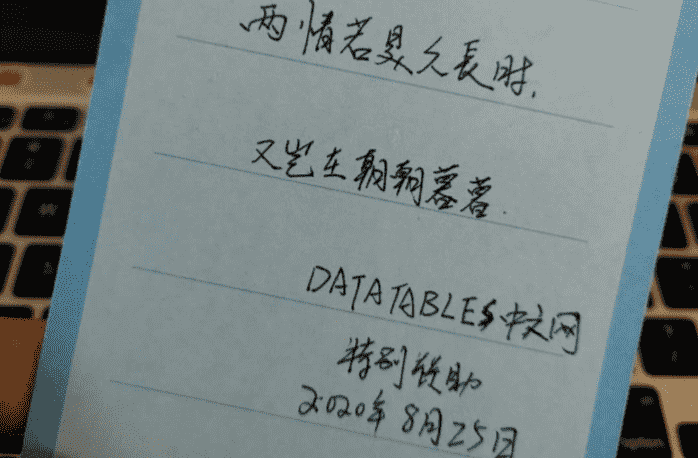 两情若是久長时,
又岂在朝朝暮暮.
DATATABLES中文网
特别赞助
2020年8月25日